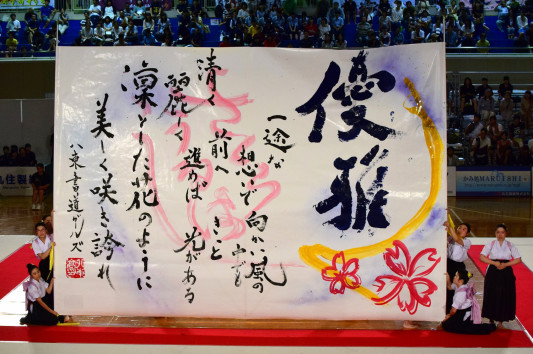 優雅
一途な
想いで向かい風の
中でも
清く
麗しく
前へ
進めば
きっと
光がある
凛とした花のように
美しく咲き誇れ
八東書道ガールズ